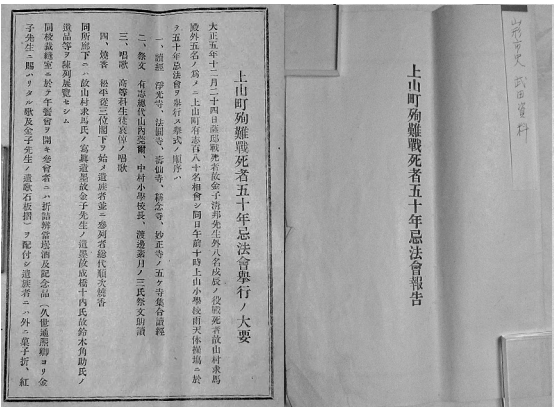 上山町殉難戰死者五十年忌法會報告
上山町殉難戰死者五十年忌法會擧行ノ大要
大正五年十二月二十四日薩邸戰死者故金子淸邦先生外八名戊辰ノ役戰死者故山村求馬
殿外五名ノ爲メニ上山町有志百八十名相會シ同日午前十時上山小學校雨天体操場ニ於
テ五十年忌法會ヲ擧行ス擧式ノ順序ハ
一、讀經 淨光寺、法圓寺、壽仙寺、稱念寺、妙正寺ノ五ケ寺集合讀經
二、祭文 有志總代山內莞爾、中村小學校長、渡邊素月ノ三氏祭文朗讀
三、唱歌 高等科生徒哀悼ノ唱歌
四、燒香 松平從三位閣下ヲ始メ遺族者並ニ參列者總代順次燒香
同所廊下ニハ故山村求馬氏ノ寫眞遺墨故金子先生ノ遺墨故成橋十內氏故鈴木角助氏ノ
遺品等ヲ陳列展覽セシム
同校裁縫室ニ於テ午餐會ヲ開キ參會者ニハ折詰辨當壜酒及記念品(久世通熈卿ヨリ金
子先生ニ賜ハリタル歌及金子先生ノ遺歌石板摺)ヲ配付シ遺族者ニハ外ニ菓子折、紅
資料